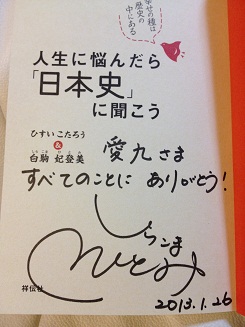 幸せの種は
歴史の
中にある
人生に悩んだら
「日本史」
に聞こう
ひすいこたろう
&
しらこま ひとみ
白駒 妃登美
愛九さま
すべてのことに ありがとう!
しらこま
ひとみ
祥伝社
2013.1.26